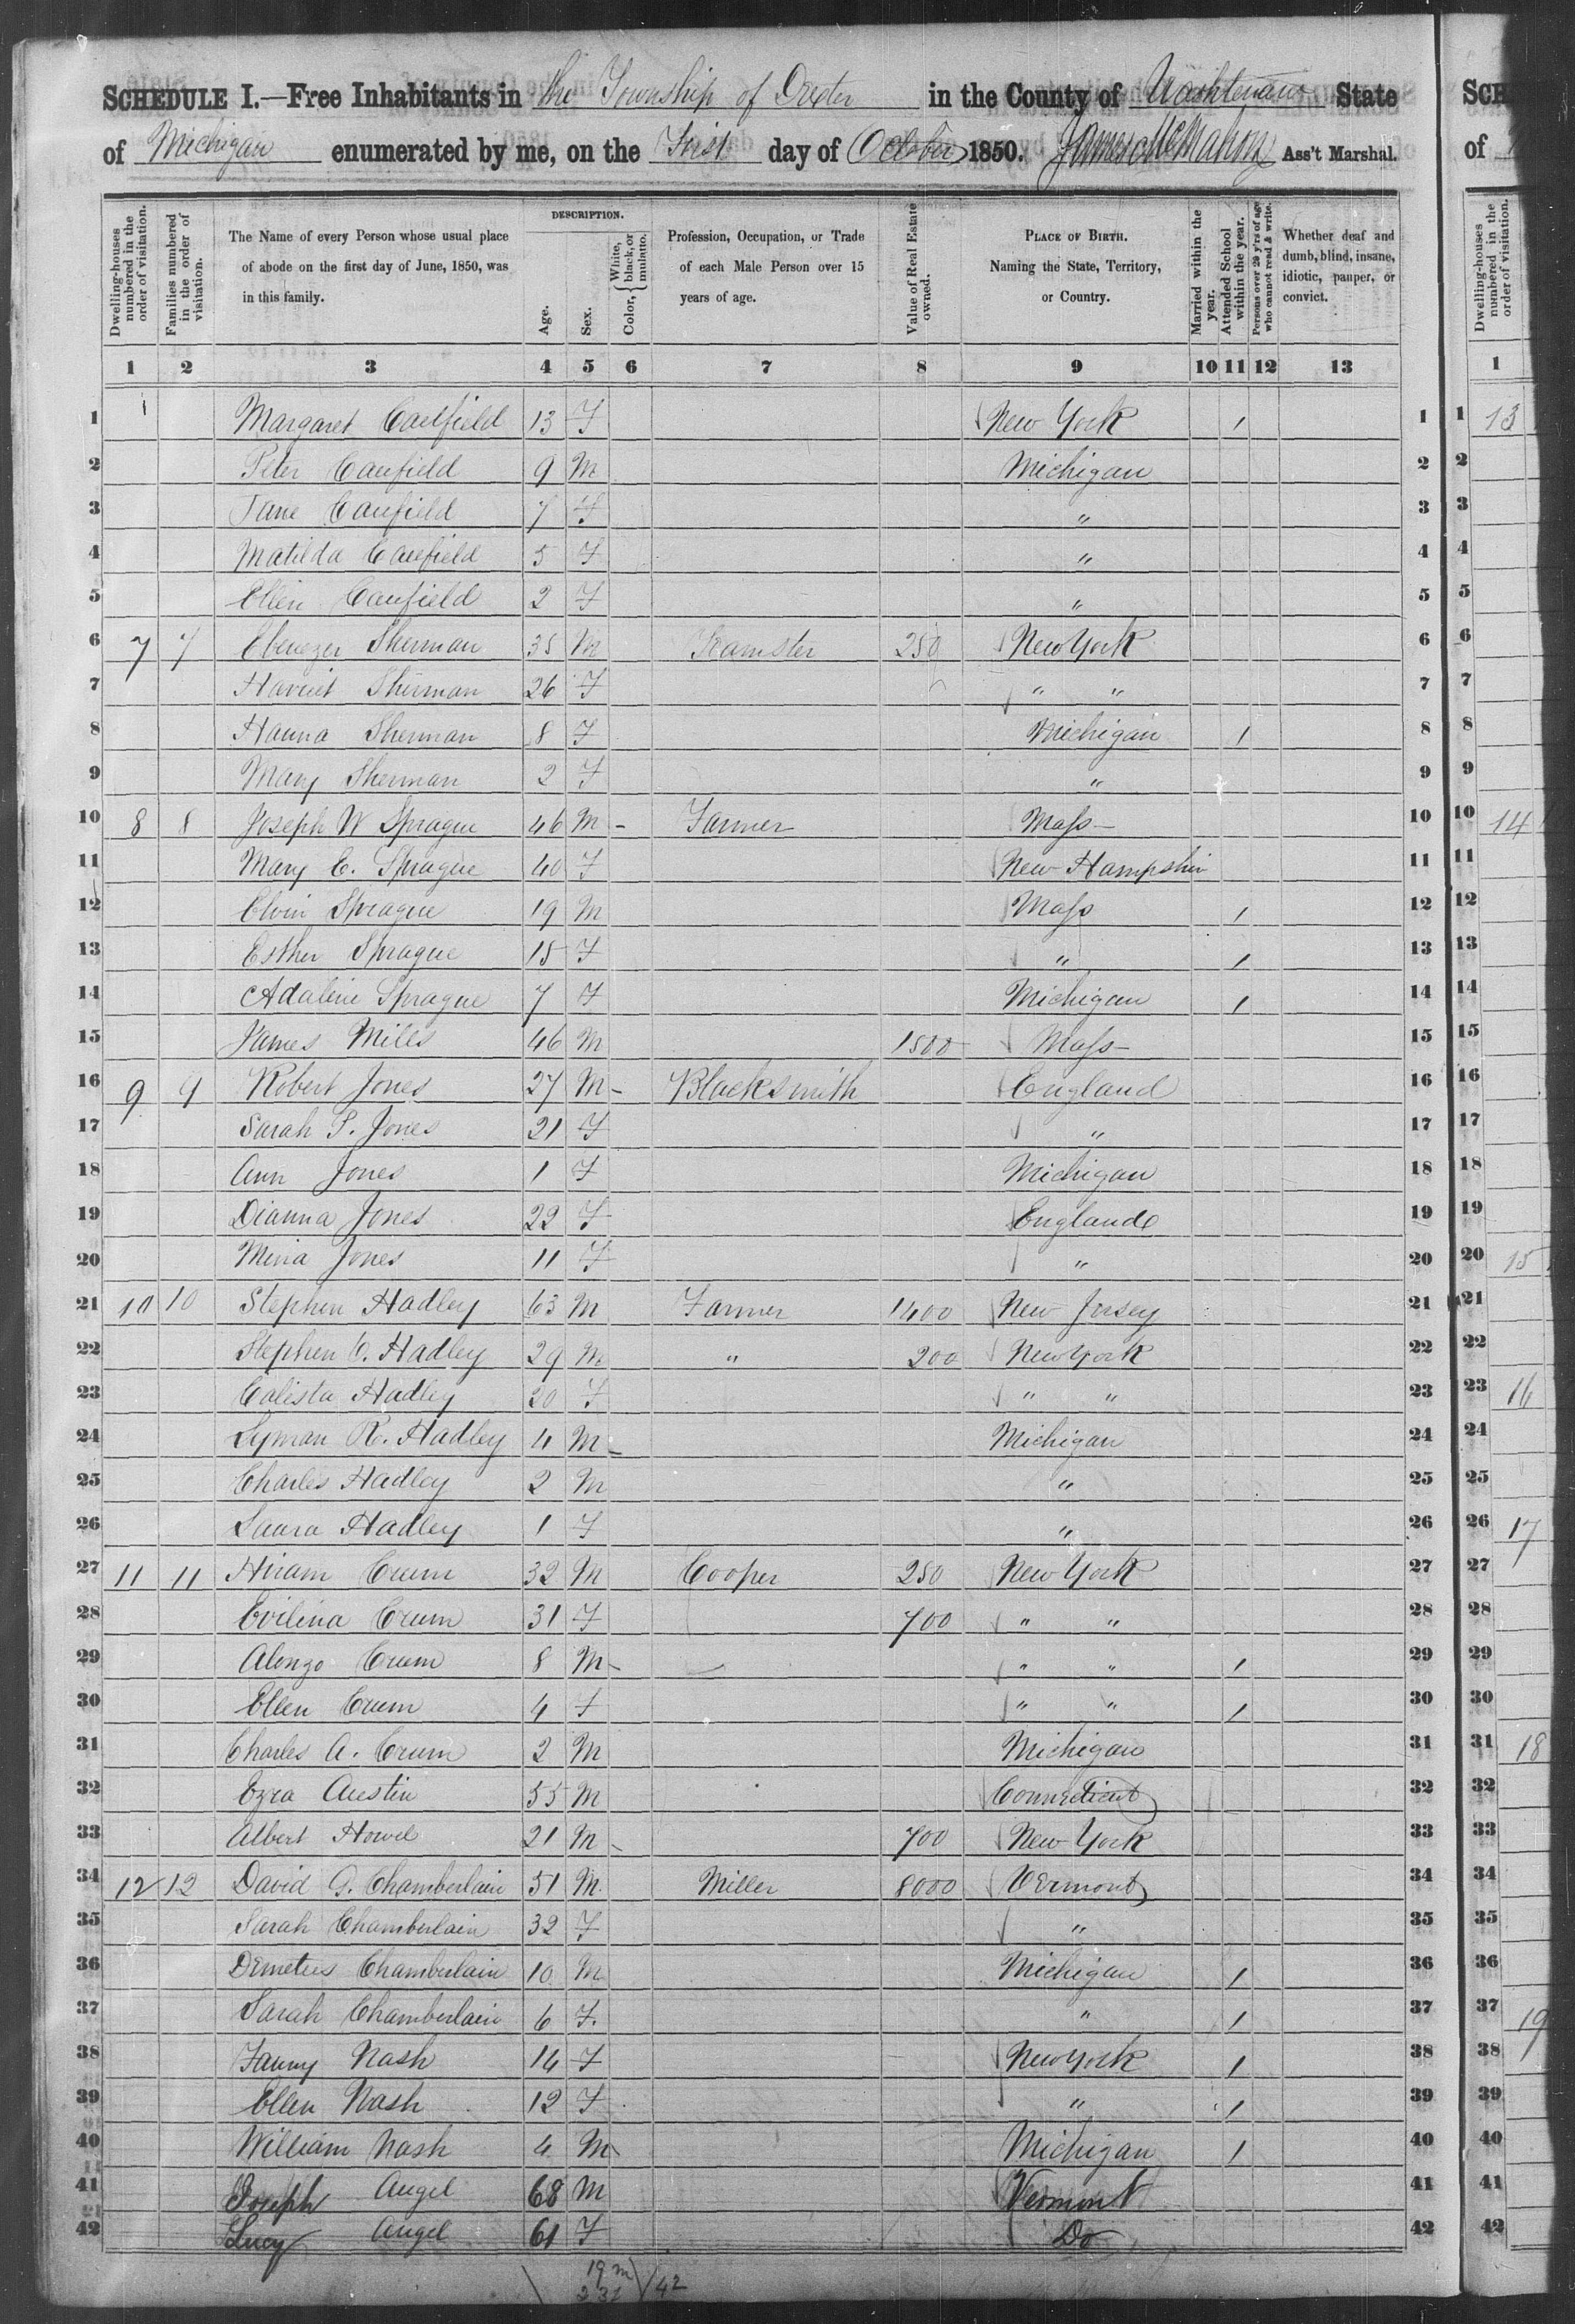 SCHEDULE I.—Free Inhabitants in the Township of Dexter in the County of Washtenaw State
of Michigan enumerated by me, on the First day of October 1850. James McMahon Ass't Marshal.
Dwelling-houses numbered in the order of visitation.
Families numbered in the order of visitation.
The Name of every Person whose usual place of abode on the first day of June, 1850, was in this family.
DESCRIPTION.
Age.
Sex.
Color, { White, black, or mulatto.
Profession, Occupation, or Trade of each Male Person over 15 years of age.
Value of Real Estate owned.
PLACE OF BIRTH. Naming the State, Territory, or Country.
Married within the year.
Attended School within the year.
Persons over 20 y'rs of age who cannot read & write.
Whether deaf and dumb, blind, insane, idiotic, pauper, or convict.
1 2 3 4 5 6 7 8 9 10 11 12 13
1 Margaret Caulfield 13 F New York 1 1
2 Peter Caufield 9 M Michigan 2
3 Jane Caufield 7 F " 3
4 Matilda Caufield 5 F " 4
5 Ellen Caufield 2 F " 5
6 7 7 Ebenezer Sherman 35 M Teamster 250 New York 6
7 Harriet Sherman 26 F " " 7
8 Hanna Sherman 8 F Michigan 1 8
9 Mary Sherman 2 F " 9
10 8 8 Joseph W Sprague 46 M - Farmer Mass- 10
11 Mary C. Sprague 40 F New Hampshire 11
12 Elvin Sprague 19 M Mass 1 12
13 Esther Sprague 15 F " 1 13
14 Adaline Sprague 7 F Michigan 1 14
15 James Mills 46 M 1500 Mass- 15
16 9 9 Robert Jones 27 M - Blacksmith England 16
17 Sarah S. Jones 21 F " 17
18 Ann Jones 1 F Michigan 18
19 Dianna Jones 22 F England 19
20 Jones 11 F " 20
21 10 10 Stephen Hadley 63 M Farmer 1400 New Jersey 21
22 Stephen C. Hadley 29 M " 200 New York 22
23 Calista Hadley 20 F " " 23
24 Lyman R. Hadley 4 M - Michigan 24
25 Charles Hadley 2 M " 25
26 Laura Hadley 1 F " 26
27 11 11 Hiram Crum 32 M Cooper 250 New York 27
28 Evilina Crum 31 F 700 " " 28
29 Alonzo Crum 8 M - " " 1 29
30 Ellen Crum 4 F " " 1 30
31 Charles A. Crum 2 M Michigan 31
32 Ezra Austin 55 M Connecticut 32
33 Albert Howel 21 M - 700 New York 33
34 12 12 David G. Chamberlain 51 M Miller 8000 Vermont 34
35 Sarah Chamberlain 32 F " 35
36 Demetrus Chamberlain 10 M Michigan 1 36
37 Sarah Chamberlain 6 F. " 1 37
38 Fanny Nash 14 F New York 1 38
39 Ellen Nash 12 F " 1 39
40 William Nash 4 M Michigan 1 40
41 Joseph Angel 68 M Vermont 41
42 Lucy Angel 61 F Do 42
19 m 42
SCH
of
Dwelling-houses numbered in the order of visitation.
1
1 13
2
3
4
5
6
7
8
9
10 14
11
12
13
14
15
16
17
18
19
20 15
21
22
23 16
24
25
26 17
27
28
29
30
31 18
32
33
34
35
36
37 19
38
39
40
41
42